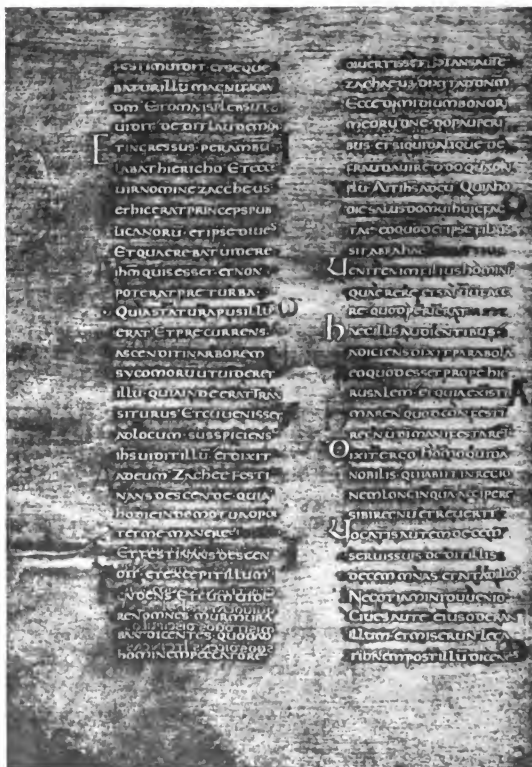 ESTIMUIDIT · ETSEQUE
BATURILLU MAGNIFICAN
DM · ETOMNISPLEBSUT
UIDIT · DEDITLAUDEMDO
ETINGRESSUS · PERAMBU
LABATHIERICHO · ETECCE
UIRNOMINEZACCHEUS
ETHICERATPRINCEPSPUB
LICANORU · ETIPSEDIUES
ETQUAEREBATUIDERE
IHMQUISESSET · ETNON
POTERATPRETURBA ·
QUIASTATURAPUSILLU
ERAT · ETPRECURRENS ·
ASCENDITINARBOREM
SYCOMORUUTUIDERET
ILLU · QUIAINDEERATTRAN
SITURUS · ETCUUENISSET
ADLOCUM · SUSSPICIENS
IHSUIDITILLU · ETDIXIT
ADEUM · ZACHEEFESTI
NANSDESCENDE · QUIA
HODIEINDOMOTUAOPOR
TETMEMANERE ·
ETFESTINANSDESCEN
DIT · ETEXCEPITILLUM
GAUDENS · ETCUMUIDE
RENTOMNESMURMURA
BANTDICENTES · QUODAD
HOMINEMPECCATORE
DIUERTISSET · STANSAUTE
ZACHAEUS · DIXITADDNM
ECCEDIMIDIUMBONOR
MEORU · DNE · DOPAUPERI
BUS · ETSIQUIDALIQUEDE
FRAUDAUI · REDDOQUADRU
PLU · AITIHSADEU · QUIAHO
DIESALUSDOMUIHUICFAC
TAE · EOQUODETIPSEFILIUS
SITABRAHAE
UENITENIMFILIUSHOMINI
QUAERERE · ETSALUUFACE
RE · QUODPERIERAT
HAECILLISAUDIENTIBUS ·
ADICIENSDIXITPARABOLA
EOQUODESSETPROPEHIE
RUSALEM · ETQUIAEXISTI
MARENTQUODCONFESTI
REGNUDIMANIFESTARET
DIXITERGO · HOMOQUIDA
NOBILIS · QUIABIITINREGIO
NEMLONGINQUAACCIPERE
SIBIREGNUETREUERTI
UOCATISAUTEMDECEM
SERUISSUIS · DEDITILLIS
DECEMMNAS · ETAITADILLO
NEGOTIAMINIDUUENIO ·
CIUESAUTEEIUSODERAN
ILLUM · ETMISERUNTLEGA
TIONEMPOSTILLUDICENS